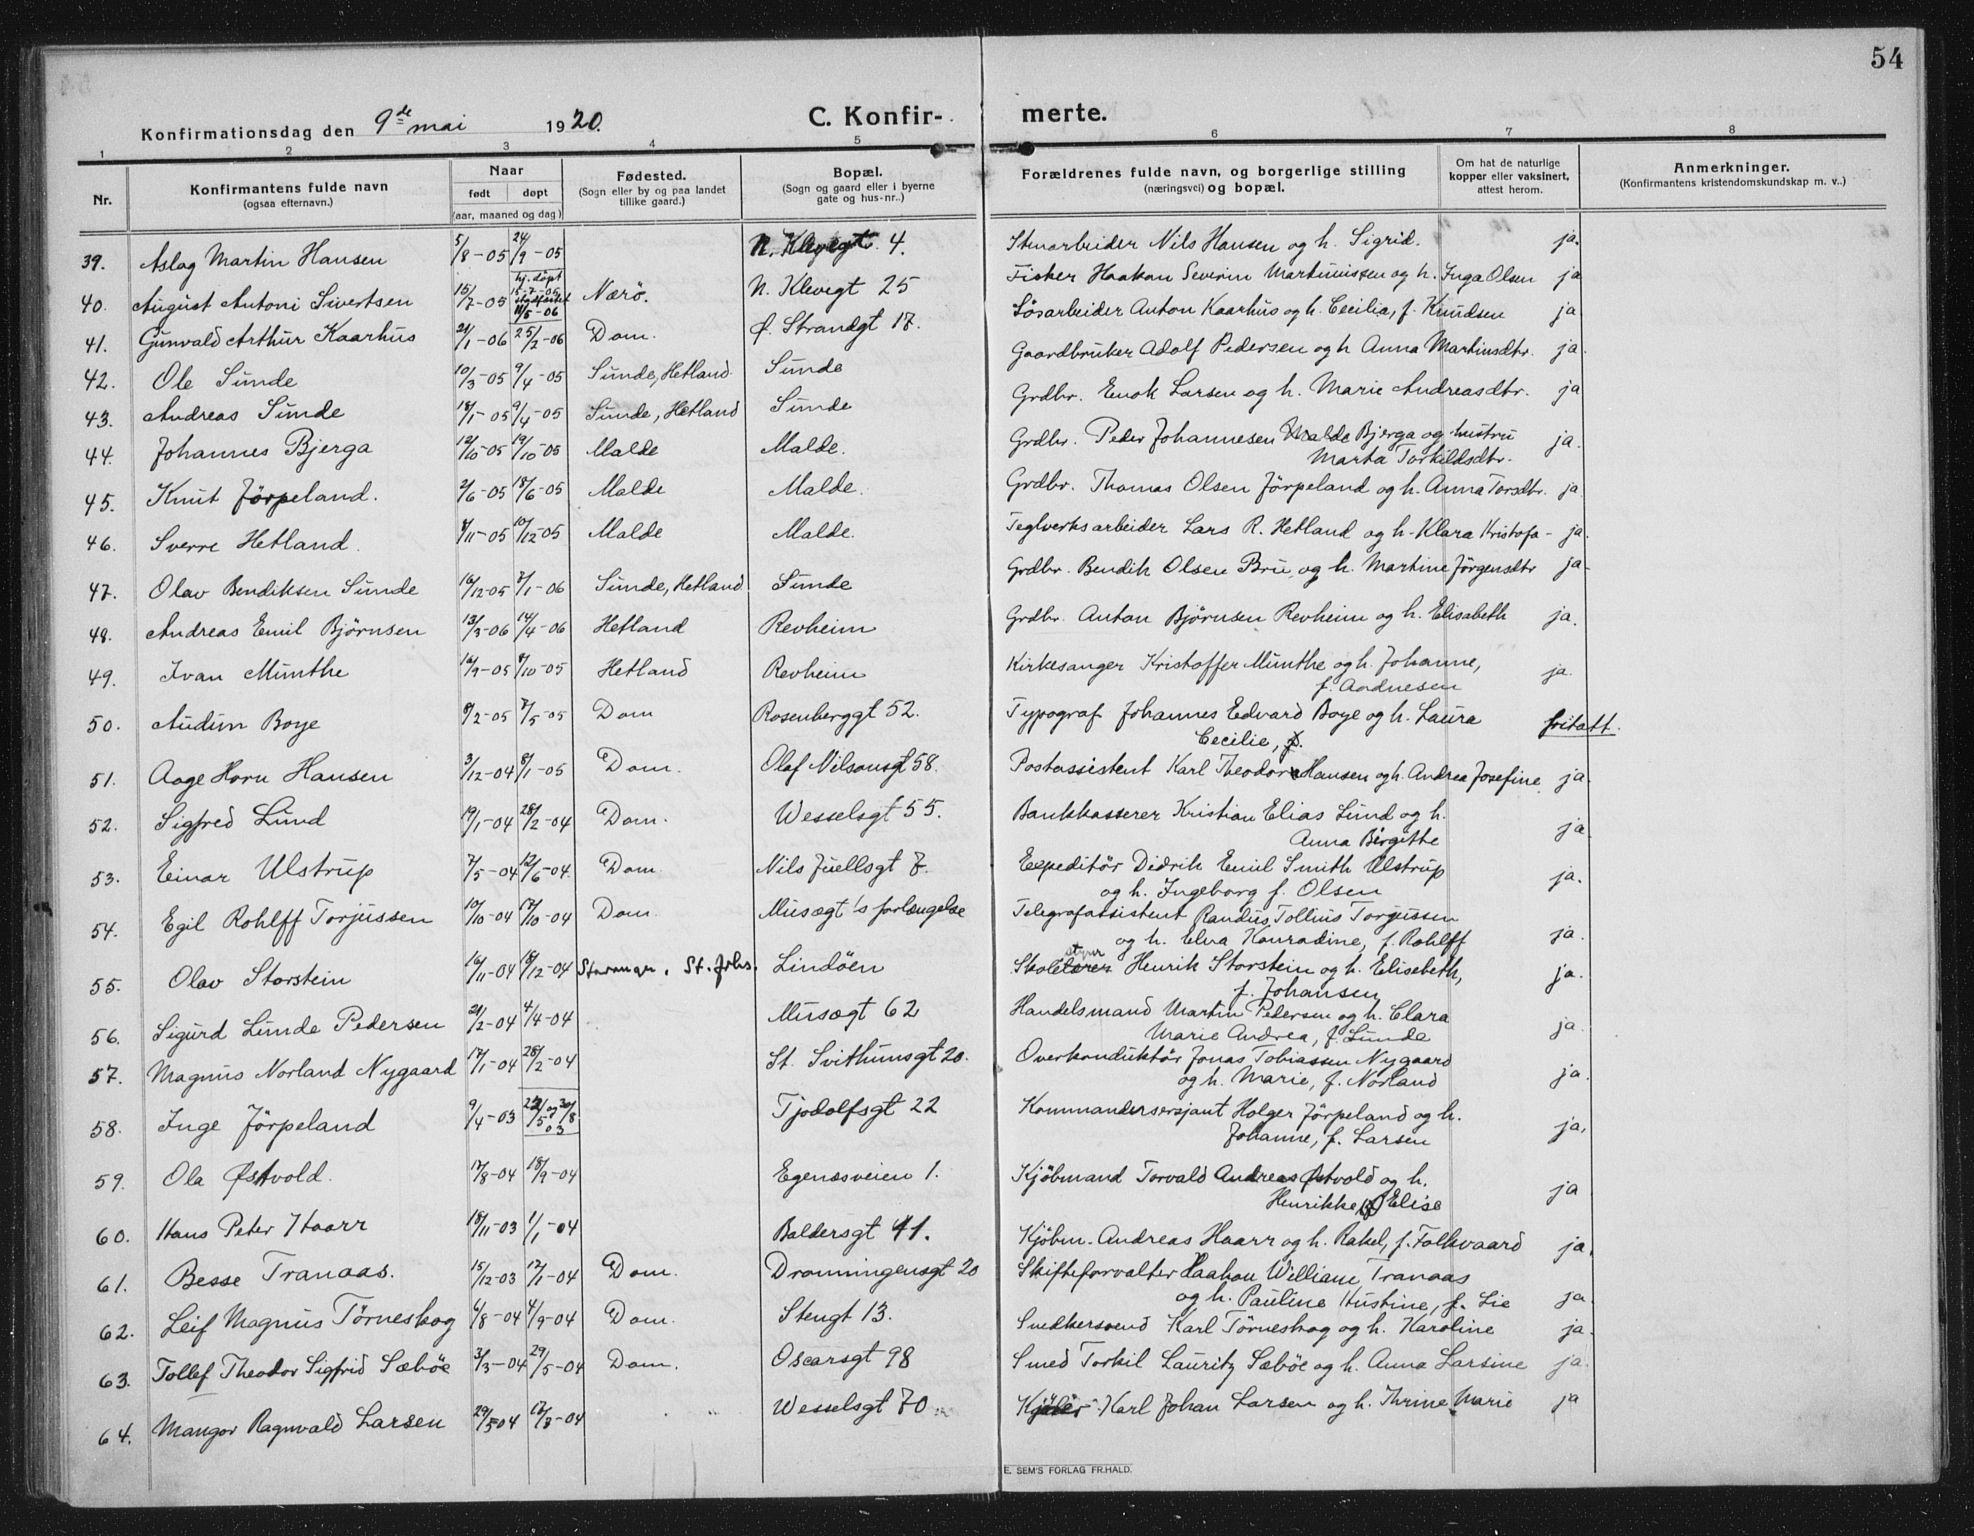 54
Konfirmationsdag den 9de mai 1920. C. Konfirmerte.
1 2 3 4 5 6 7 8
Nr. Konfirmantens fulde navn (ogsaa efternavn.) Naar født døpt (aar, maaned og dag) Fødested. (Sogn eller by og paa landet tillike gaard.) Bopæl. (Sogn og gaard eller i byerne gate og hus-nr.) Forældrenes fulde navn, og borgerlige stilling (næringsvei) og bopæl. Om hat de naturlige kopper eller vaksinert, attest herom. Anmerkninger. (Konfirmantens kristendomskundskap m. v.)
39. Aslag Martin Hansen 5/8-05 24/9-05 N. Klevegt. 4. Stenarbeider Nils Hansen og h. Sigrid. ja.
40. August Antoni Sivertsen 15/7-05 hj. døpt 15-7-05 stadfestet 11/5-06 Nærö. N. Klevegt 25 Fisker Haakan Severin Martinussen og h. Inga Olsen ja
41. Gunvald Arthur Kaarhus 21/1-06 25/2-06 Dom. Ø. Strandgt 17. Løsarbeider Anton Kaarhus og h. Cecilia, f. Knudsen ja
42. Ole Sunde 10/3-05 9/4-05 Sunde, Hetland Sunde Gaardbruker Adolf Pedersen og h Anna Martinsdtr. ja
43. Andreas Sunde 18/1-05 9/4-05 Sunde, Hetland Sunde Grdbr. Enok Larsen og h. Marie Andreasdtr. ja
44. Johannes Bjerga 12/10-05 19/10-05 Malde Malde. Grdbr. Peder Johannesen Malde Bjerga og hustru
Marta Torkildsdtr. ja.
45. Knut Jörpeland. 2/6-05 18/6-05 Malde Malde. Grdbr. Thomas Olsen Jörpeland og h. Anna Torsdtr. ja
46. Sverre Hetland. /11-05 10/12-05 Malde Malde. Teglverksarbeider Lars R. Hetland og h. Klara Kristofa - ja.
47. Olav Bendiksen Sunde 16/12-05 7/1-06 Sunde, Hetland Sunde Grdbr. Bendik Olsen Bru og h. Martine Jörgensdtr ja
48. Andreas Emil Björnsen 13/3-06 14/4-06 Hetland Revheim Grdbr. Anton Björnsen Revheim og h. Elisabeth ja.
49. Ivan Munthe 16/9-05 8/10-05 Hetland Revheim Kirkesanger Kristoffer Munthe og h. Johanne,
f. ja.
50. Audun Boye /2-05 7/5-05 Dom Rosenberggt 52. Typograf Johannes Edvard Boye og h. Laura
Cecilie, fritatt.
51. Aage Horn Hansen 3/12-04 8/1-05 Dom. Olaf Nilsonsgt 58. Postassistent Karl Theodor Hansen og h. Andrea Josefine. ja.
52. Sigfred Lund 19/1-04 28/2-04 Dom. Wesselsgt 55. Bankkasserer Kristian Elias Lund og h.
Anna Birgitte ja
53. Einar Ulstrup 7/5-04 12/6-04 Dom Nils Juellsgt 7. Expeditör Didrik Emil Smith Ulstrup
og h. Ingeborg f. Olsen ja.
54. Egil Rohlff Torjussen 10/10-04 17/10-04 Dom. Musægt's forlængelse Telegrafassistent Randus Tollius Torjussen
og h. Elva Konradine, f. Rohlff ja.
55. Olav Storstein 16/11-04 18/12-04 Stavanger. St. Johs. Lindöen Skole Henrik Storstein og h. Elisebeth,
f. Johansen ja.
56. Sigurd Lunde Pedersen 21/2-04 4/4-04 Musægt 62 Handelsmand Martin Pedersen og h. Clara
Marie Andrea, f. Lunde ja
57. Magnus Norland Nygaard 17/1-04 28/2-04 St. Svithunsgt 20. Overkonduktör Jonas Tobiassen Nygaard
og h. Marie, f. Norland ja.
58. Inge Jörpeland 9/4-03 22/5 og 30/8 03 Tjodolfsgt 22 Kommandersersjant Holger Jörpeland og h.
Johanne, f. Larsen ja.
59. Ola Østvold. 17/8-04 18/9-04 Egenæsveien 1. Kjöbmand Torvald Andreas Østvold og h.
Henrikke Elise ja
60. Hans Peter Haarr 18/11-03 1/1-04 Baldersgt 41. Kjöbm. Andreas Haarr og h. Rakel, f. Folkvaard ja.
61. Besse Tranaas. 15/12-03 17/1-04 Dom. Dronningensgt 20 Skifteforvalter Haakon William Tranaas
og h. Pauline Hustine, f. Lie ja.
62. Leif Magnus Törneskog 6/8-04 4/9-04 Dom. Stengt 13. Snedkersvend Karl Törneskog og h. Karoline ja.
63. Tollef Theodor Sigfrid Sæböe 3/3-04 29/5-04 Dom. Oscarsgt 98 Smed Torkil Lauritz Sæböe og h. Anna Larsine ja.
64. Mangor Ragnvald Larsen 29/5 04 /8-04 " Wesselsgt 70 Karl Johan Larsen og h. Thrine Marie ja
E. SEM'S FORLAG FR.HALD.